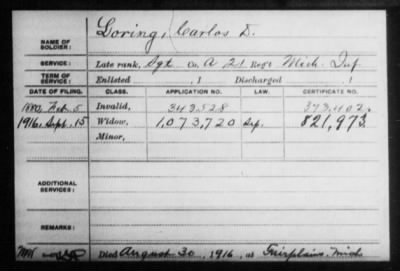 NAME OF SOLDIER: Loring, Carlos D.
SERVICE: Late rank, Sgt Co. A 21 Reg't Mich. Inf.
TERM OF SERVICE: Enlisted , 1 Discharged , 1
DATE OF FILING. CLASS. APPLICATION NO. LAW. CERTIFICATE NO.
1880, Feb. 5 Invalid, 343,528 373,402.
1916, Sept. 15 Widow, 1,073,720 821,973
Minor,
ADDITIONAL SERVICES:
REMARKS:
Died August 30, 1916, at Fairplains, Mich